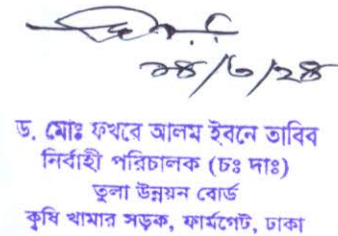 ১৪/৩/২৪
ড. মোঃ ফখরে আলম ইবনে তাবিব
নির্বাহী পরিচালক (চঃ দাঃ)
তুলা উন্নয়ন বোর্ড
কৃষি খামার সড়ক, ফার্মগেট, ঢাকা